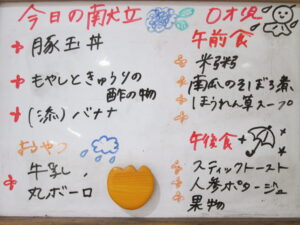 今日の献立
豚玉丼
もやしときゅうりの
酢の物
(添)バナナ
おやつ
牛乳
丸ボーロ
0才児
午前食
米粥
南瓜のそぼろ煮
ほうれん草スープ
午後食
スティックトースト
人参ポタージュ
果物